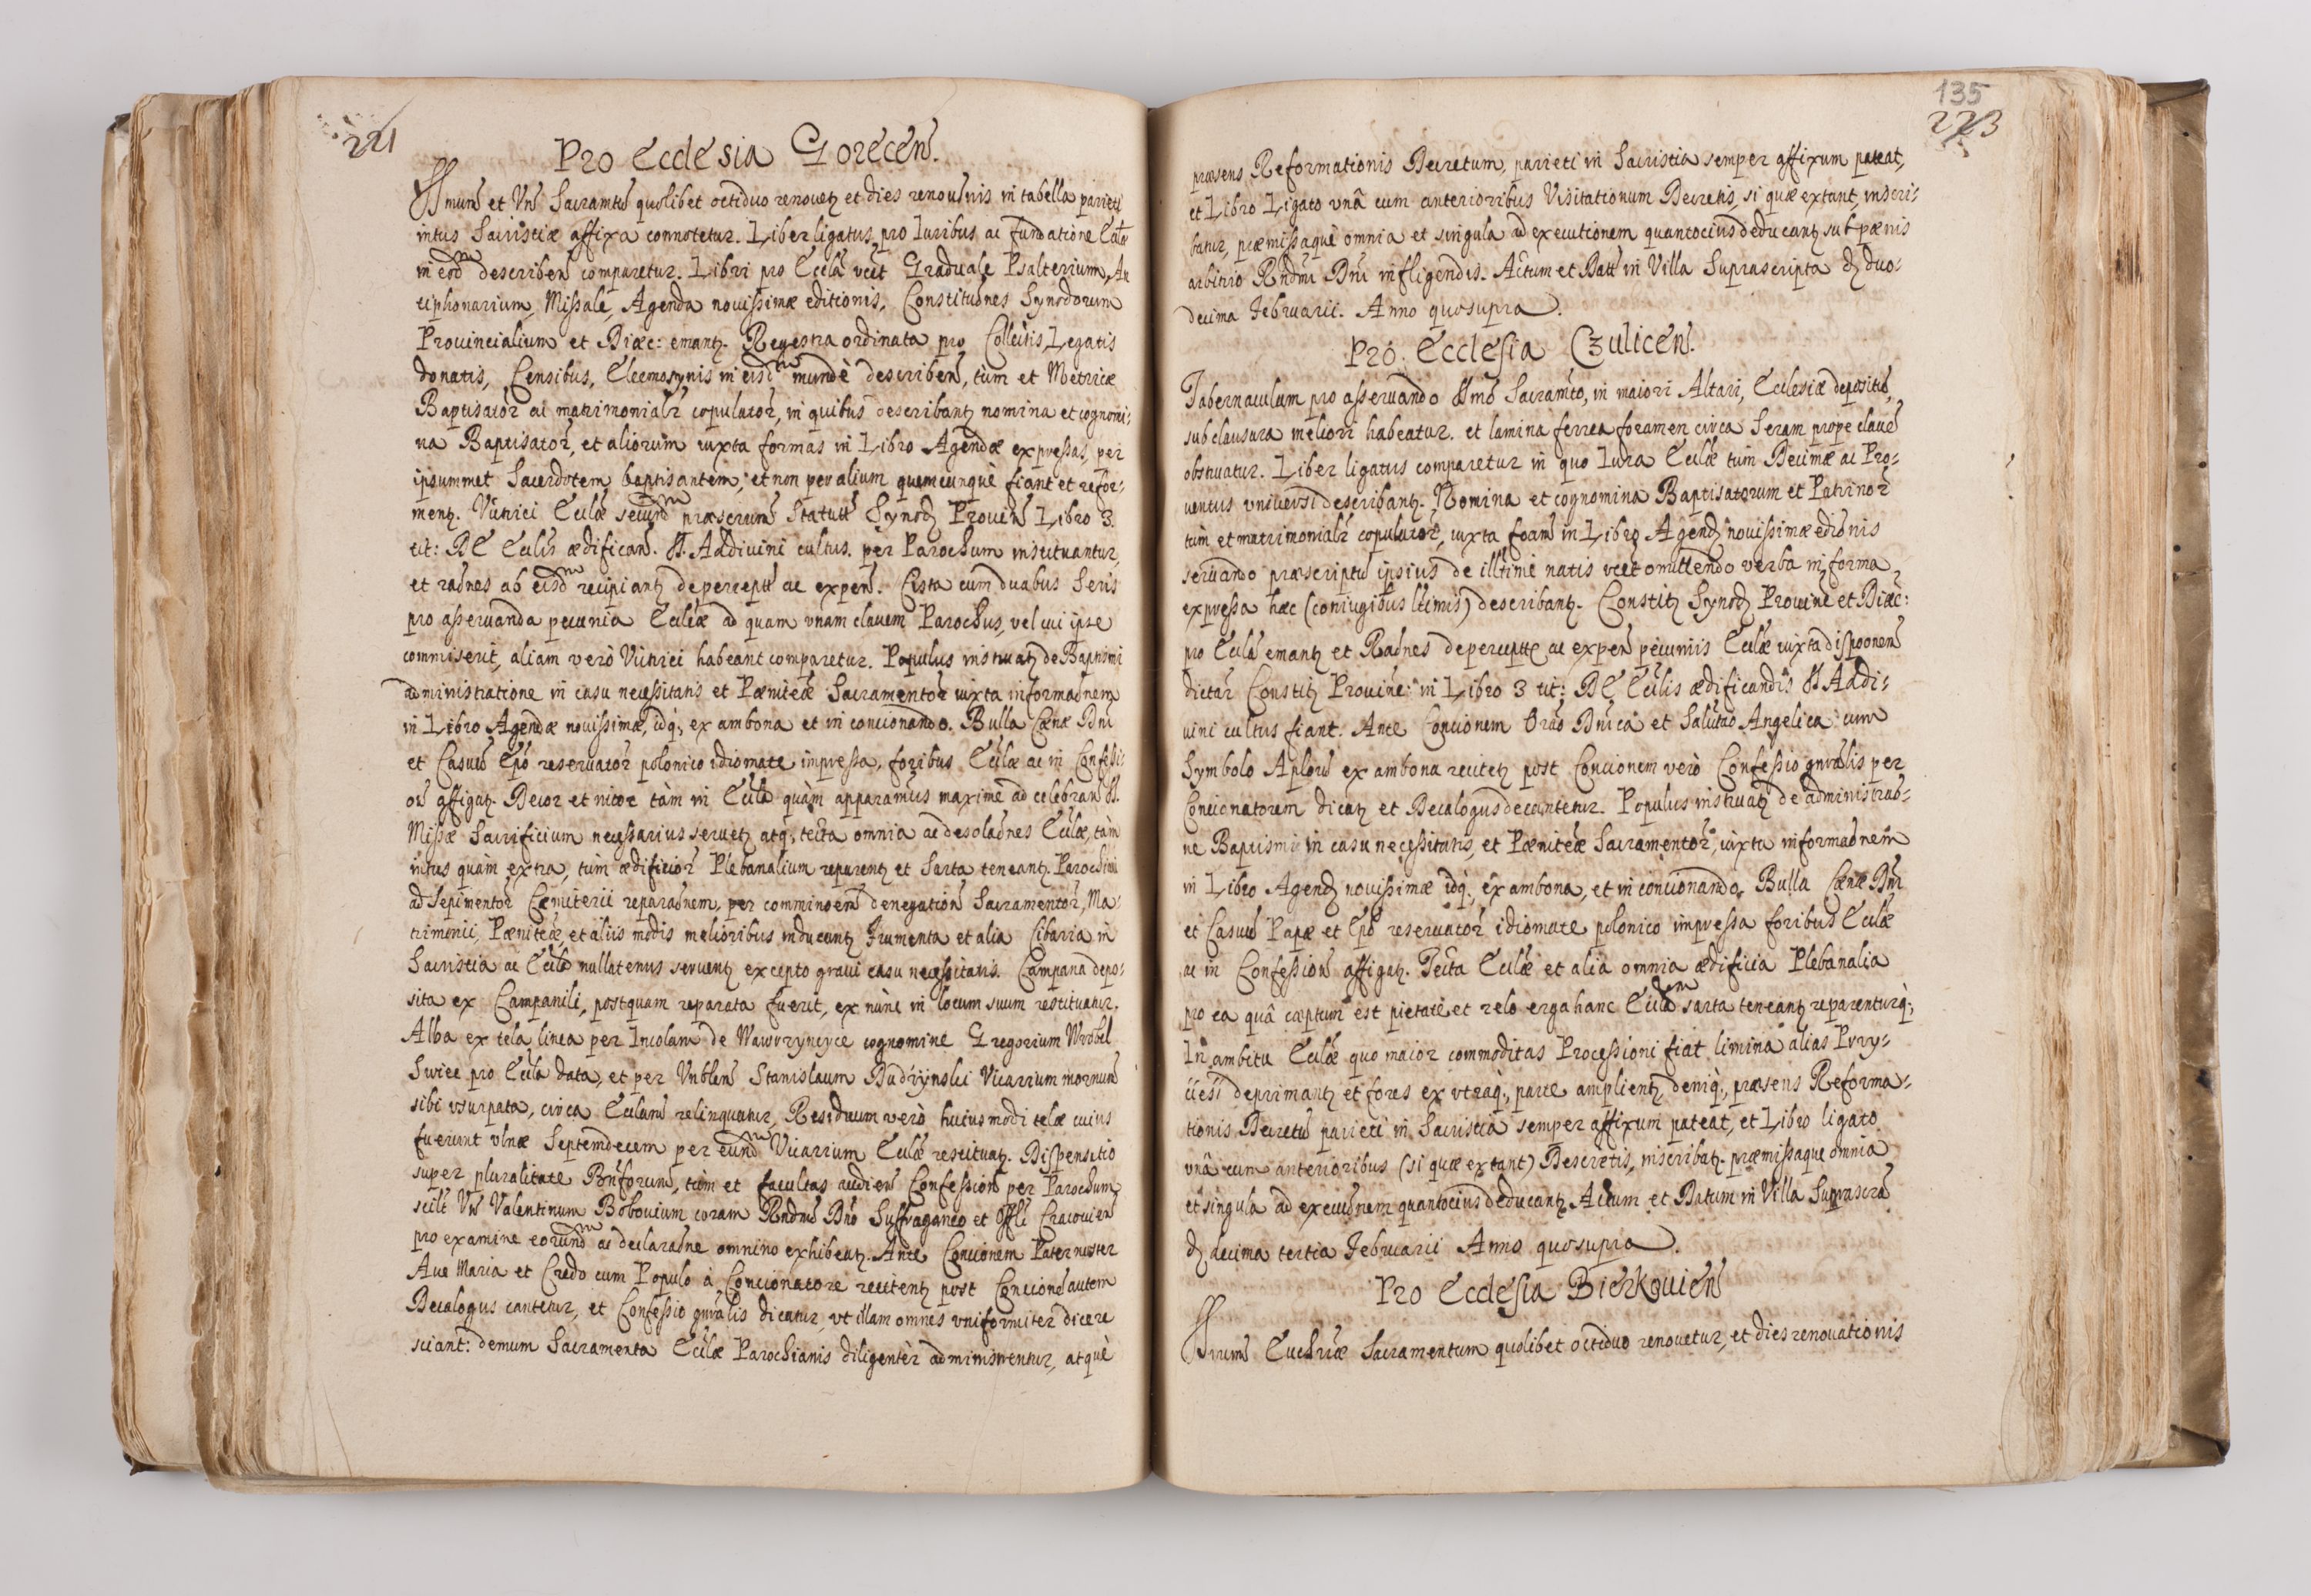 221
Pro Ecclesia Gorecen̄.
SSmum̄ et Vn̄ Sacramtū quolibet octiduo renouetʒ et dies renouōnis in tabella parieti
intus Sacristiæ affixa connotetur. Liber ligatus, pro Iuribus ac fundatione Ecclæ
in eodm describen̄ comparetur. Libri pro Eccla vclt Graduale Psalterium, An
tiphonarium, Missale, Agenda nouissimæ editionis, Constituōnes Synodorum
Prouincialium et Diæc: emantʒ. Regestra ordinata pro Collectis, Legatis
donatis, Censibus, Eleemosynis in eisdm mundè describen̄, tùm et Metricæ
Baptisator̄ ac matrimonialr̄ copulator̄, in quibus describantʒ nomina et cognomi-
na Baptisator̄, et aliorum iuxta formas in Libro Agendæ expressas, per
ipsummet Sacerdotem baptisantem, et non per alium quemcunquè fiant et refor-
mentʒ. Vitrici Ecclæ secundm præscrum̄ Statutt Synodʒ Prouin̄ Libro 3.
tit: DE Ecclis ædifican̄. §. Addiuini cultus. per Parochum instituantur,
et raōnes ab eisdm recipiantʒ de perceptt ac expen̄. Cista cum duabus Seris
pro asseruanda pecunia Eccliæ ad quam vnam clauem Parochus, vel cui ipse
commiserit, aliam verò Vitrici habeant comparetur. Populus instruatʒ de Baptismi
administratione in casu necessitatis et Pænitēæ Sacramentor̄ iuxta informaōnem
in Libro Agendæ nouissimæ, idq́; ex ambona et in concionando. Bulla Cænæ Dnī
et Casuū Epō reseruator̄ polonico idiomate impressa, foribus Ecclæ ac in Confessi-
on̄ affigatʒ. Decor et nitor tàm in Eccla quàm apparamtis maximè ad celebran̄ S.
Missæ Sacrificium necessarius seruetʒ atq́; tecta omnia ac desolaōnes Ecclæ, tàm
intus quàm extra, tùm ædificior̄ Plebanalium reparentʒ et Sarta teneantʒ. Parochiani
ad Sepimentor̄ Cæmiterii reparaōnem, per comminoēm denegation̄ Sacramentor̄, Ma-
trimonii, Pænitēæ, et aliis modis melioribus inducantʒ Frumenta et alia Cibaria in
Sacristia ac Eccla nullatenus seruentʒ excepto graui casu necessitatis. Campana depo-
sita ex Campanili, postquam reparata fuerit, ex nùnc in locum suum restituatur.
Alba ex tela linea per Incolam de Wawrzyncyce cognomine Gregorium Wrobel
Swiec pro Eccla data, et per Vnblem̄ Stanislaum Budzynski Vicarium mornum
sibi vsurpata, circa Ecclam relinquatur, Residuum verò huiusmodi telæ cuius
fuerunt vlnæ Septemdecem per eundm Vicarium Ecclæ restituatʒ. Dispensatio
super pluralitate Bn̄forum, tùm et facultas audien̄ Confession̄ per Parochum
scilt Vn̄ Valentinum Bobouium coram Rndmō Dnō Suffraganeo et Offlī Cracouien̄
pro examine eorundm ac declaraōne omnino exhibeatʒ. Ante Concionem Pater noster
Aue Maria et Credo cum Populo à Concionatore recitentʒ post Concionē autem
Decalogus cantetur, et Confessio gnrālis dicatur, vt illam omnes vniformiter dicere
sciant: demum Sacramenta Ecclæ Parochianis diligentèr administrentur, atquè
135
223
præsens Reformationis Decretum, parieti in Sacristia semper affixum pateat,
et Libro Ligato vnâ cum anterioribus Visitationum Decretis, si quæ extant, inscri-
batur, præmissaquè omnia et singula ad executionem quantocius deducantʒ sub pænis
arbitrio Rndmi Dnī infligendis. Actum et Datt in Villa Suprascripta dʒ duo-
decima Februarii. Anno quosupra.
Pro Ecclesia Czulicen̄.
Tabernaculum pro asseruando SSmō Sacramto, in maiori Altari, Ecclesiæ depositū,
sub clausura meliori habeatur. et lamina ferrea foramen circa Seram prope clauē
obstruatur. Liber ligatus comparetur in quo Iura Ecclæ tùm Decimæ ac Pro-
uentus vniuersi describantʒ. Nomina et cognomina Baptisatorum et Patrinor̄
tùm et matrimonialr̄ copulator̄, iuxta foam̄ in Libro Agendʒ nouissimæ ediōnis
seruando præscriptū ipsius de illtimè natis vclt omittendo verba in forma
expressa hæc (coniugibus lt̄imis) describantʒ. Constitʒ Synodʒ Prouin̄c et Diæc:
pro Eccla emantʒ et Raōnes de perceptt ac expen̄ pecuniis Ecclæ iuxta disposnen̄
dictar̄ Constitʒ Prouin̄c: in Libro 3 tit: DE Ecclis ædificandis §. Addi-
uini cultus fiant. Ante Concionem Oraō Dnīca et Salutaō Angelica cum
Symbolo Aplorū ex ambona recitetʒ post Concionem verò Confessio gnrālis per
Concionatorem dicatʒ et Decalogus decantetur. Populus instruatʒ de administraō-
ne Baptismi in casu necessitatis, et Pænitēæ Sacramentor̄, iuxta informaōnem
in Libro Agendʒ nouissimæ idq́; ex ambona, et in concionando. Bulla Cænæ Dnī
et Casuū Papæ et Epō reseruator̄ idiomate polonico impressa foribus Ecclæ
ac in Confession̄ affigatʒ. Tecta Ecclæ et alia omnia ædificia Plebanalia
pro ea quâ cæptum est pietate et zelo erga hanc Ecclam sarta teneantʒ reparenturq́;
In ambitu Ecclæ quo maior commoditas Processioni fiat limina alias Przy-
ciesi deprimantʒ et fores ex vtraq́; parte amplientʒ deniq́; præsens Reforma-
tionis Decretū parieti in Sacristia semper affixum pateat, et Libro ligato
vnâ cum anterioribus (si quæ extant) Descretis, inscribatʒ. præmissaque omnia
et singula ad execuōnem quantocius deducantʒ Actum et Datum in Villa Suprascrā
dʒ decima tertia Februarii Anno quosupra.
Pro Ecclesia Bierkouien̄
SSmum̄ Euchriæ Sacramentum quolibet octiduo renouetur, et dies renouationis